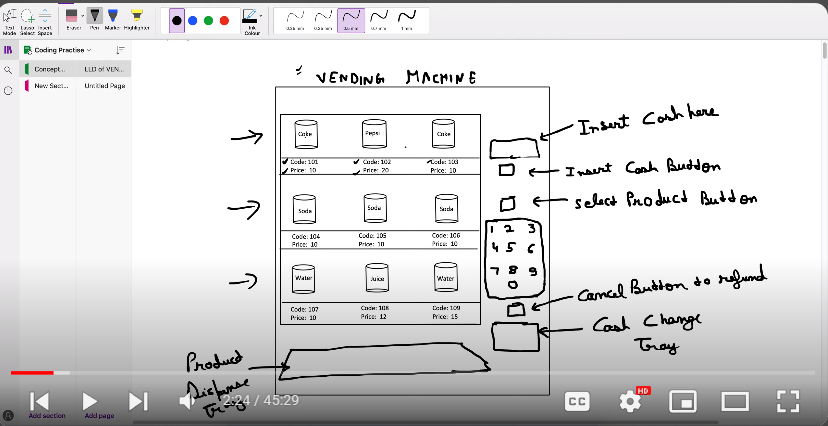 Text
Mode
Lasso
Select
Insert
Space
Eraser
Pen
Marker
Highlighter
Ink
Colour
0.7 mm
1 mm
Coding Practise
Concept...
LLD of VEN...
New Sect...
Untitled Page
VENDING MACHINE
Coke
Pepsi
Coke
Code: 101
Code: 102
Code: 103
Price: 10
Price: 20
Price: 10
Soda
Soda
Soda
Code: 104
Code: 105
Code: 106
Price: 10
Price: 10
Price: 10
Water
Juice
Water
Code: 107
Code: 108
Code: 109
Price: 10
Price: 12
Price: 15
Insert Cash here
Insert Cash Button
Select Product Button
1 2 3
4 5 6
7 8 9
0
Cancel Button to refund
Cash Change
Tray
Product
Dispense
Tray
2:24 / 45:29
CC
HD
Add section
Add page